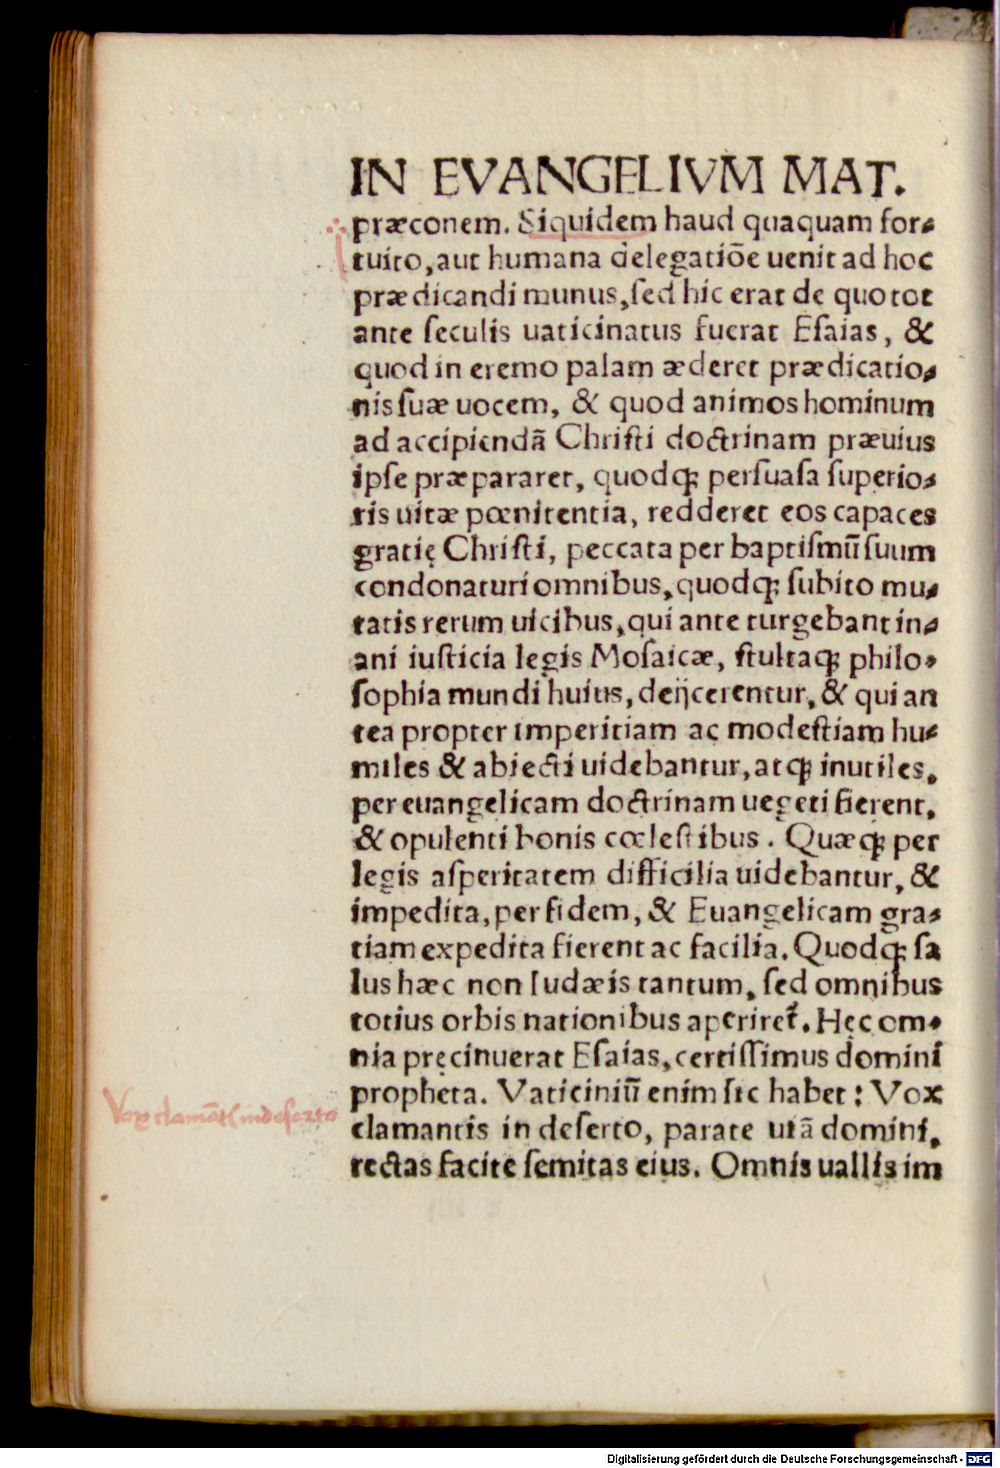 IN EVANGELIVM MAT.
præconem. Siquidem haud quaquam for⸗
tuito, aut humana delegatiõe uenit ad hoc
prædicandi munus, sed hic erat de quo tot
ante seculis uaticinatus fuerat Esaias, &
quod in eremo palam æderet prædicatio⸗
nis suæ uocem, & quod animos hominum
ad accipiendã Christi doctrinam præuius
ipse præpararet, quodq; persuasa superio⸗
ris uitæ pœnitentia, redderet eos capaces
gratię Christi, peccata per baptismũ suum
condonaturi omnibus, quodq; subito mu⸗
tatis rerum uicibus, qui ante turgebant in⸗
ani iusticia legis Mosaicæ, stultaq; philo⸗
sophia mundi huius, deijcerentur, & qui an
tea propter imperitiam ac modestiam hu⸗
miles & abiecti uidebantur, atq; inutiles,
per euangelicam doctrinam uegeti fierent,
& opulenti bonis cœlestibus. Quæq; per
legis asperitatem difficilia uidebantur, &
impedita, per fidem, & Euangelicam gra⸗
tiam expedita fierent ac facilia. Quodq; sa
lus hæc non Iudæis tantum, sed omnibus
totius orbis nationibus aperiret̃. Hęc om⸗
nia pręcinuerat Esaias, certissimus domini
propheta. Vaticiniũ enim sic habet: Vox
clamantis in deserto, parate uiã domini,
rectas facite semitas eius. Omnis uallis im
Vox clamãt in deserto
Digitalisierung gefördert durch die Deutsche Forschungsgemeinschaft - DFG